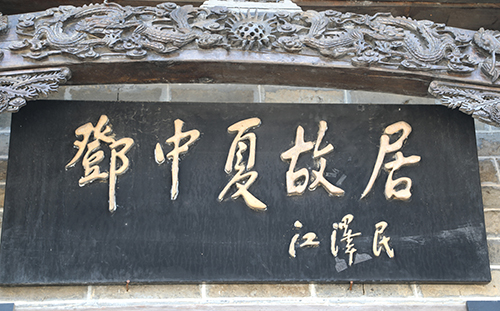 鄧中夏故居
江澤民